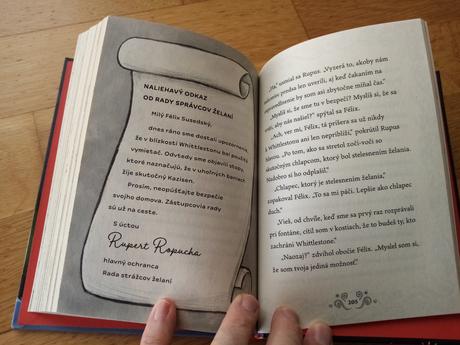 NALIEHAVÝ ODKAZ
OD RADY SPRÁVCOV ŽELANÍ
Milý Félix Susedský,
dnes ráno sme dostali upozornenie,
že v blízkosti Whittlestonu bol použitý
vymietač. Odvtedy sme objavili stopy,
ktoré naznačujú, že v uhoľných baniach
žije skutočný Kazisen.
Prosím, neopúšťajte bezpečie
svojho domova. Zástupcovia rady
sú už na ceste.
S úctou
Rupert Ropucha
hlavný ochranca
Rada strážcov želaní
usmial sa Rupus. „Vyzerá to, akoby nám
predsa len uverili, aj keď čakaním na
by som asi zbytočne míňal čas.“
„Myslíš, že sme tu v bezpečí? Myslíš si, že sa
aby nás našiel?“ spýtal sa Félix.
„Ach, ver mi, Félix, tá príšera sa už nikdy
k Whittlestonu ani len nepriblíži,“ pokrútil Rupus
hlavou. „Po tom, ako sa stretol zoči-voči so
skutočným chlapcom, ktorý bol stelesnením želania.
Nadobro si ho odplašil.“
„Chlapec, ktorý je stelesnením želania,“
zopakoval Félix. „To sa mi páči. Lepšie ako chlapec
duch.“
„Viek, od chvíle, keď sme sa prvý raz rozprávali
pri fontáne, cítil som v kostiach, že to budeš ty, kto
zachráni Whittlestone.“
„Naozaj?“ zdvihol obočie Félix. „Myslel som si,
že som tvoja jediná možnosť.“
205